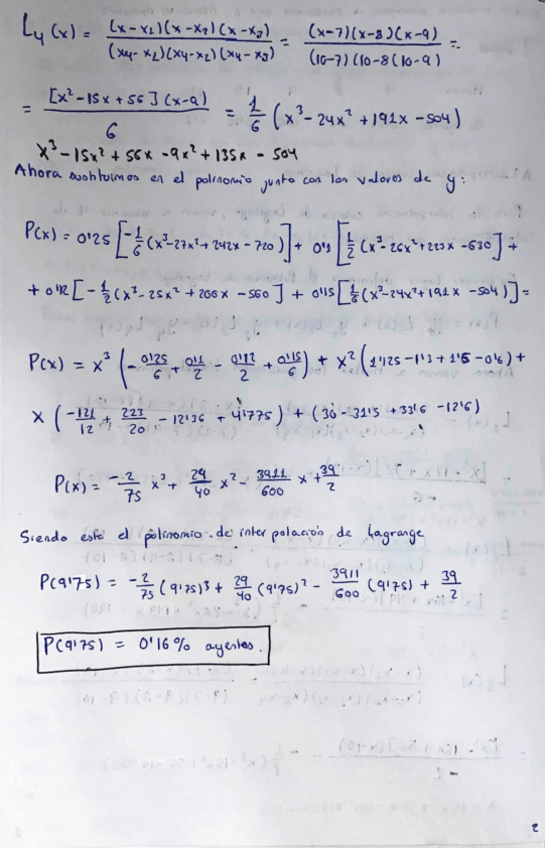 L₄(x) = (x-x₁)(x-x₂)(x-x₃) / (x₄-x₁)(x₄-x₂)(x₄-x₃) = (x-7)(x-8)(x-9) / (10-7)(10-8(10-9) =
= [x²-15x+56](x-9) / 6 = 1/6 (x³-24x²+191x-504)
x³-15x²+56x-9x²+135x-504
Ahora sustituimos en el polinomio junto con los valores de y:
P(x) = 0'25 [-1/6 (x³-27x²+242x-720)] + 0'1 [1/2 (x³-26x²+223x-630] +
+ 0'12 [-1/2 (x³-25x²+206x-560] + 0'15 [1/6 (x³-24x²+191x-504)] =
P(x) = x³ (-0'25/6 + 0'1/2 - 0'12/2 + 0'15/6) + x² (1'125-1'3+1'5-0'6) +
x (-121/12 + 223/20 - 12'36 + 4'775) + (30-31'5+33'6-12'6)
P(x) = -2/75 x³ + 29/40 x² - 3911/600 x + 39/2
Siendo este el polinomio de interpolación de Lagrange
P(9'75) = -2/75 (9'75)³ + 29/40 (9'75)² - 3911/600 (9'75) + 39/2
P(9'75) = 0'16% ayentes.
2